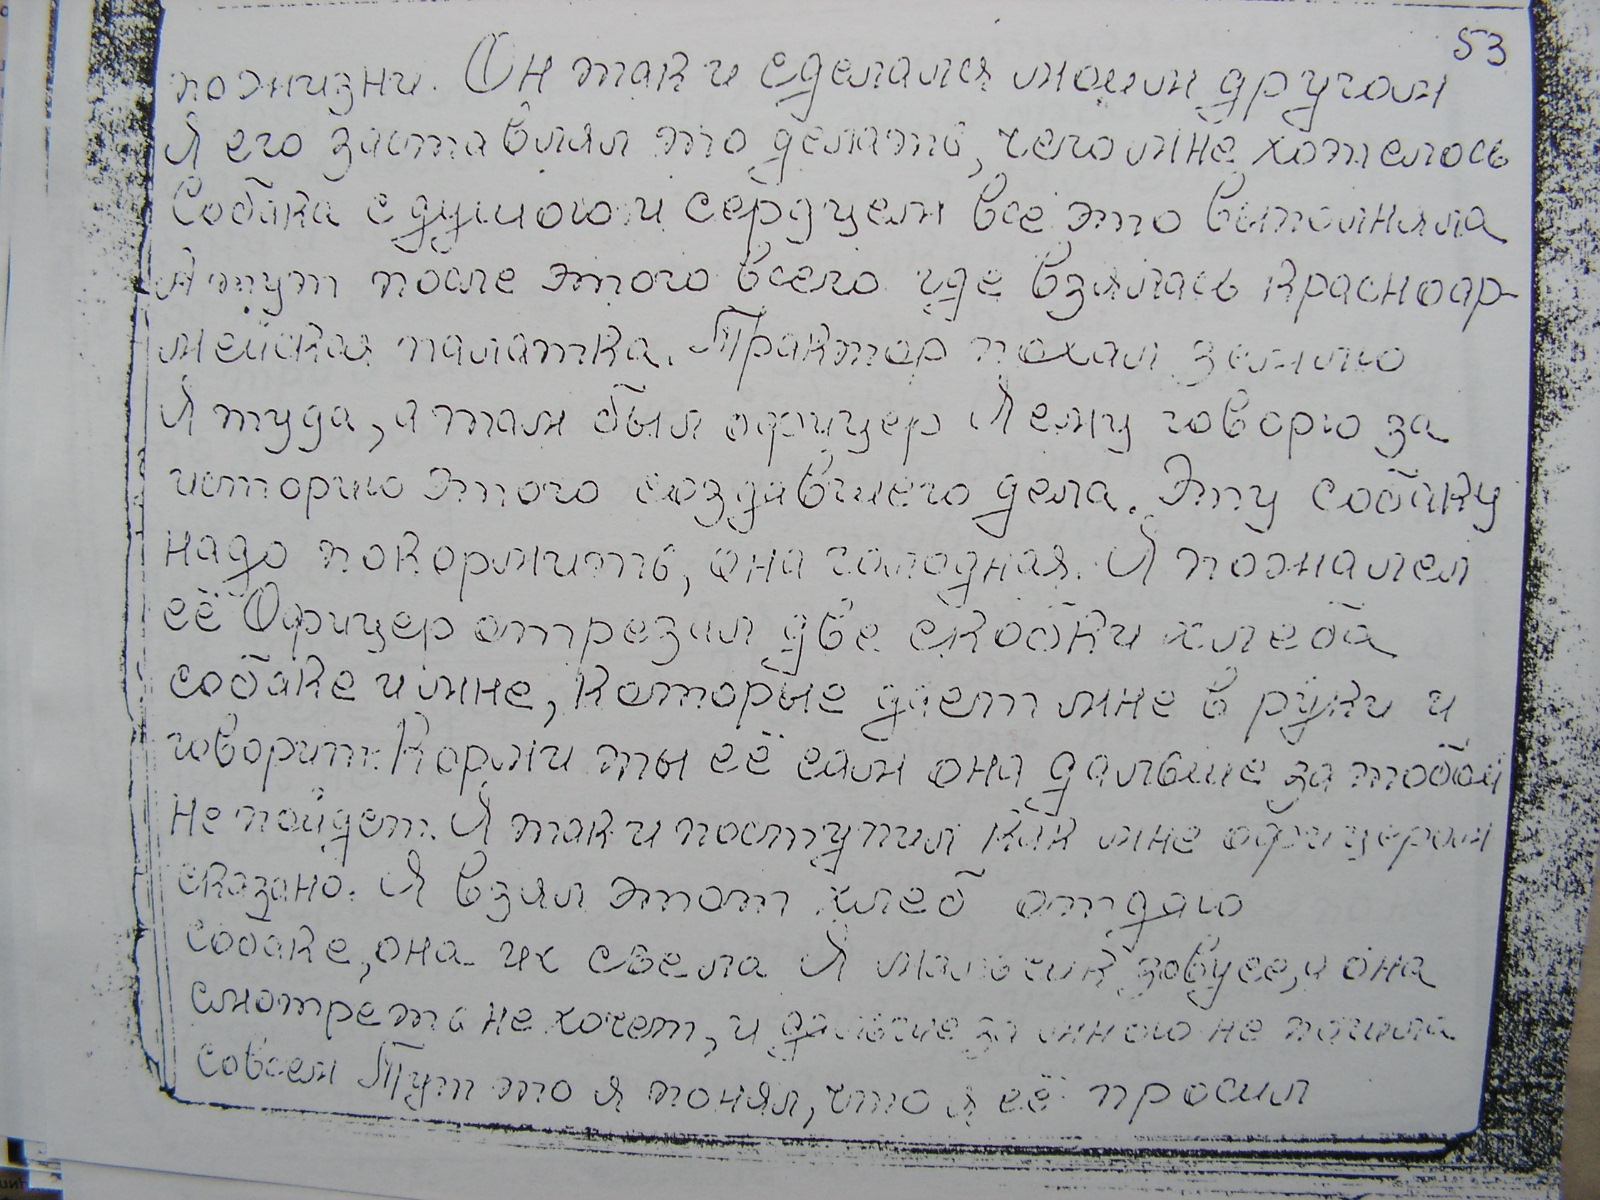 53
по жизни. Он так и сделался моим другом
Я его заставлял то делать, чего мне хотелось
Собака с душою и сердцем все это выполняла
А тут после этого всего где взялась красноар-
мейская палатка. Трактор похал землю
Я туда, а там был офицер Я ему говорю за
историю этого создавшего дела. Эту собаку
надо покормить, она голодная. Я пожалел
её Офицер отрезал две скобки хлеба
собаке и мне, которые дает мне в руки и
говорит: Корми ты её сам она дальше за тобой
не пойдет. Я так и поступил как мне офицером
сказано. Я взял этот хлеб отдаю
собаке, она их съела Я мальчик зову ее, и она
смотреть не хочет, и дальше за мною не пошла
совсем Тут то я понял, что я её просил